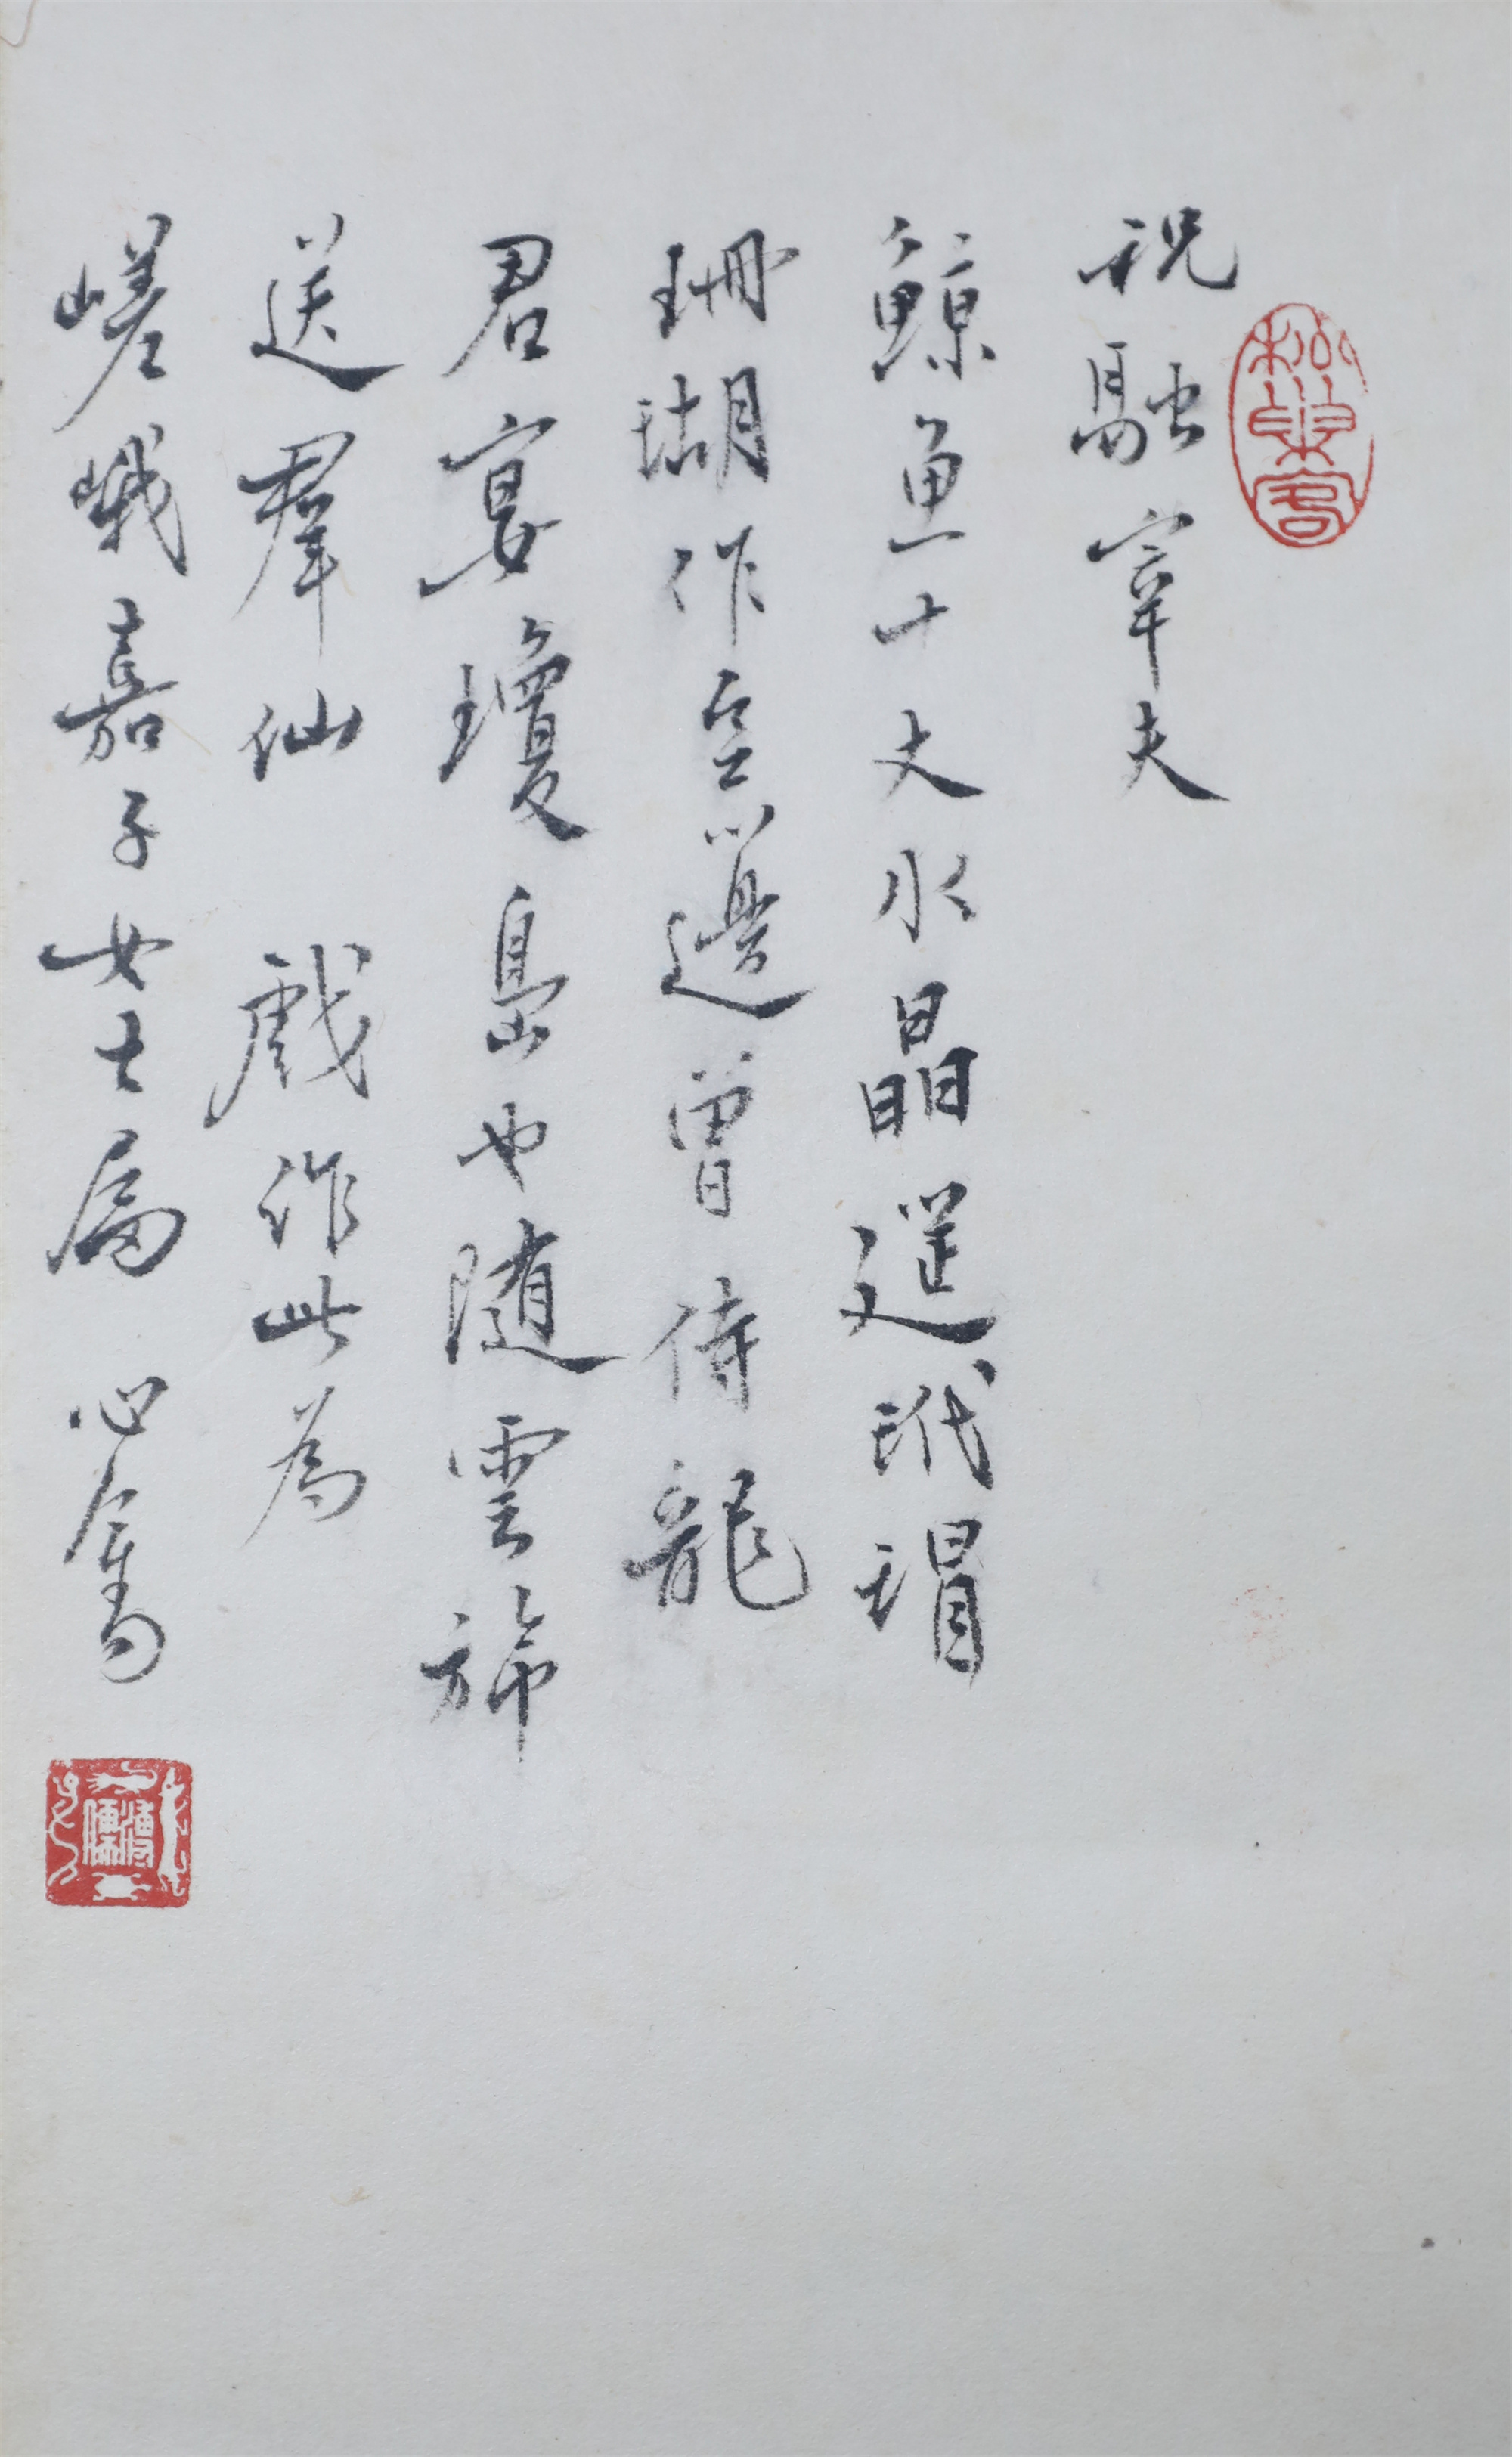 祝融宰夫
鯨魚十丈水晶筵玳瑁
珊瑚作豆籩曾侍龍
君宴瓊島也随雲旆
送羣仙 戲作此為
嵯峨嘉子女士屬 心畬
松巢客
溥儒